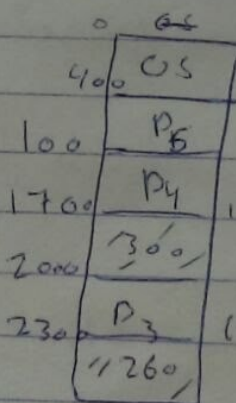 0
OS
400
100 P5
1700 P4
300
2000
2300 P3
260